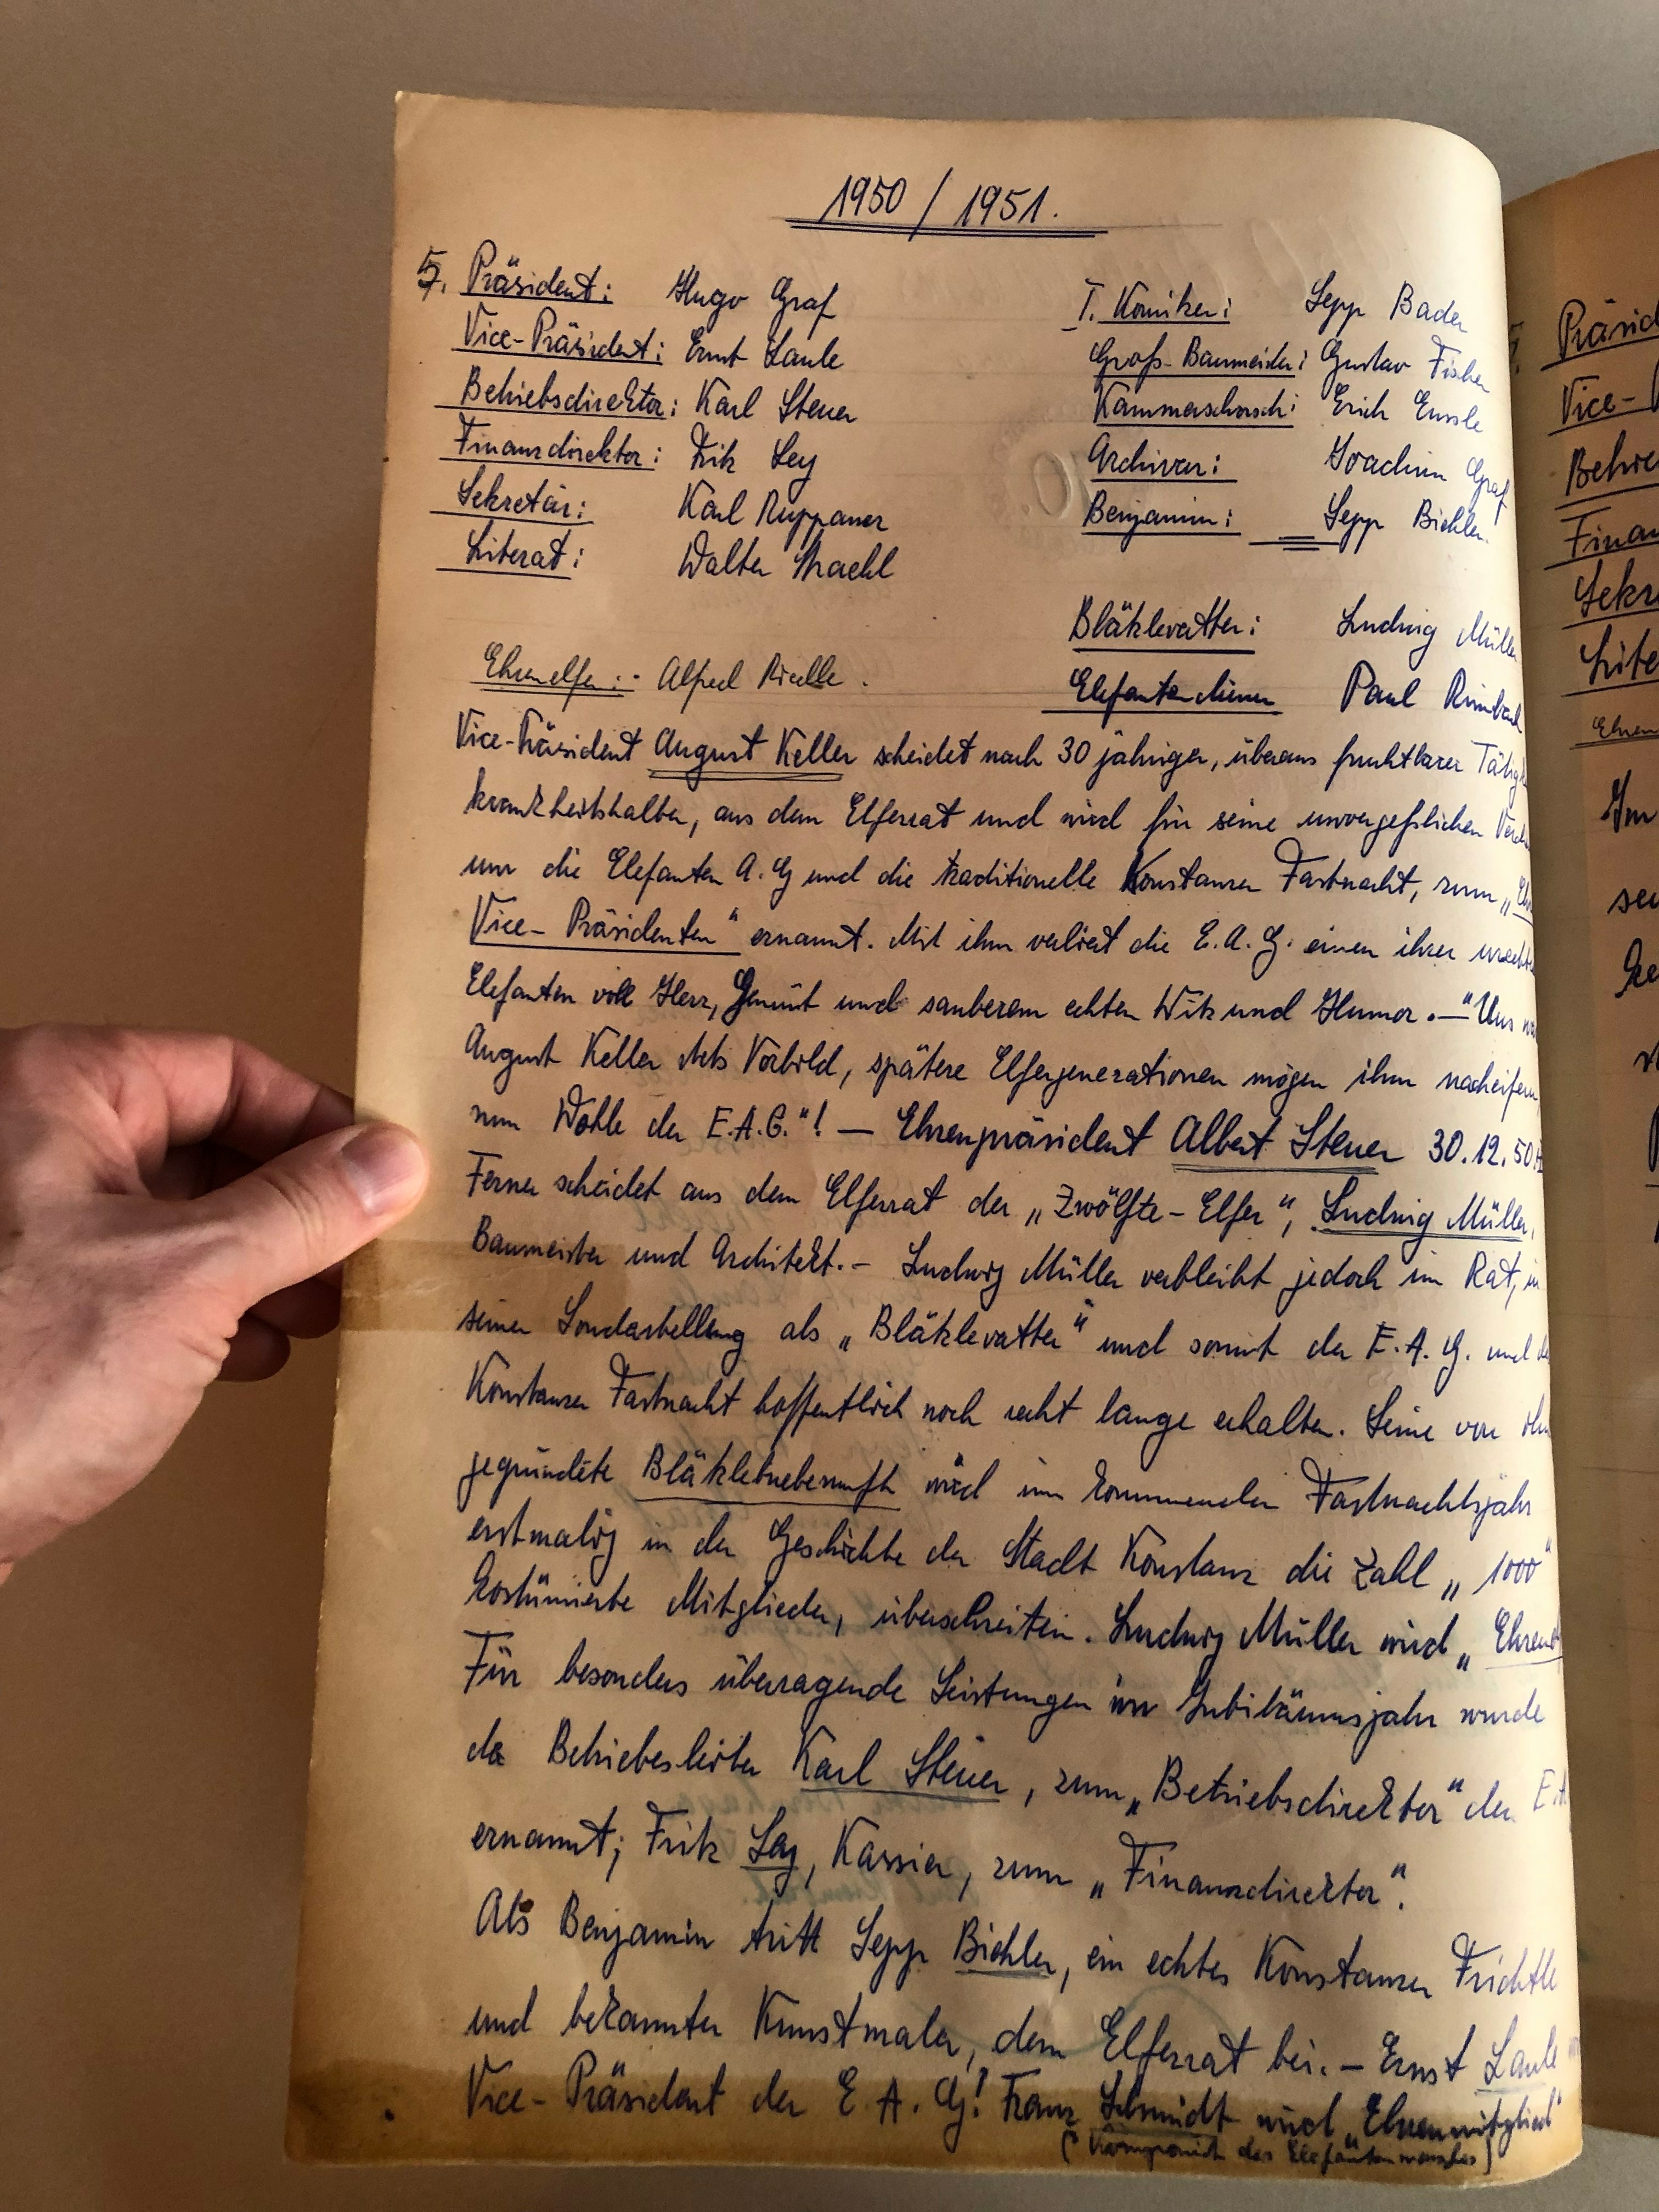 1950 / 1951.
5. Präsident: Hugo Graf
Vice-Präsident: Ernst Laule
Betriebsdirektor: Karl Steuer
Finanzdirektor: Fritz Ley
Sekretär: Karl Ruppaner
Literat: Walter Strachl
Ehrenelfer: Alfred Rielle.
I. Komiker: Sepp Bader
Groß-Baumeister: Gustav Fischer
Kammerschorsch: Erich Enssle
Archivar: Joachim Graf
Benjamin: Sepp Biehler.
Blätzlevatter: Ludwig Müller
Elefantendiener Paul
Vice-Präsident August Keller scheidet nach 30 jähriger, überaus fruchtbarer
krankheitshalber, aus dem Elferrat und wird für seine unvergeßlichen
um die Elefanten A. G und die traditionelle Konstanzer Fastnacht, zum „
Vice-Präsidenten" ernannt. Mit ihm verliert die E. A. G. einen ihrer
Elefanten voll Herz, Gemüt und sauberem echten Witz und Humor. — "Uns
August Keller stets Vorbild, spätere Elfergenerationen mögen ihm nacheifern
zum Wohle der E.A.G."! — Ehrenpräsident Albert Steuer 30.12.50
Ferner scheidet aus dem Elferrat der „Zwölfte-Elfer", Ludwig Müller,
Baumeister und Architekt. — Ludwig Müller verbleibt jedoch im Rat, in
seiner Sonderstellung als „Blätzlevatter" und somit der E. A. G. und
Konstanzer Fastnacht hoffentlich noch recht lange erhalten. Seine von ihm
gegründete Blätzlebuebezunft wird im kommenden Fastnachtsjahr
erstmalig in der Geschichte der Stadt Konstanz die Zahl „1000"
kostümierte Mitglieder, überschreiten. Ludwig Müller wird „
Für besonders überragende Leistungen im Jubiläumsjahr wurde
der Betriebesleiter Karl Steuer, zum „Betriebsdirektor" der
ernannt; Fritz Ley, Kassier, zum „Finanzdirektor".
Als Benjamin tritt Sepp Biehler, ein echtes Konstanzer Frichtle
und bekannter Kunstmaler, dem Elferrat bei. — Ernst Laule
Vice-Präsident der E A. G! Franz Schmidt wird „Ehrenmitglied"
(Komponist des Elefantenmarsches)
Präsid
Vice-
Betrie
Finan
Sekre
Lite
Ehren
Im